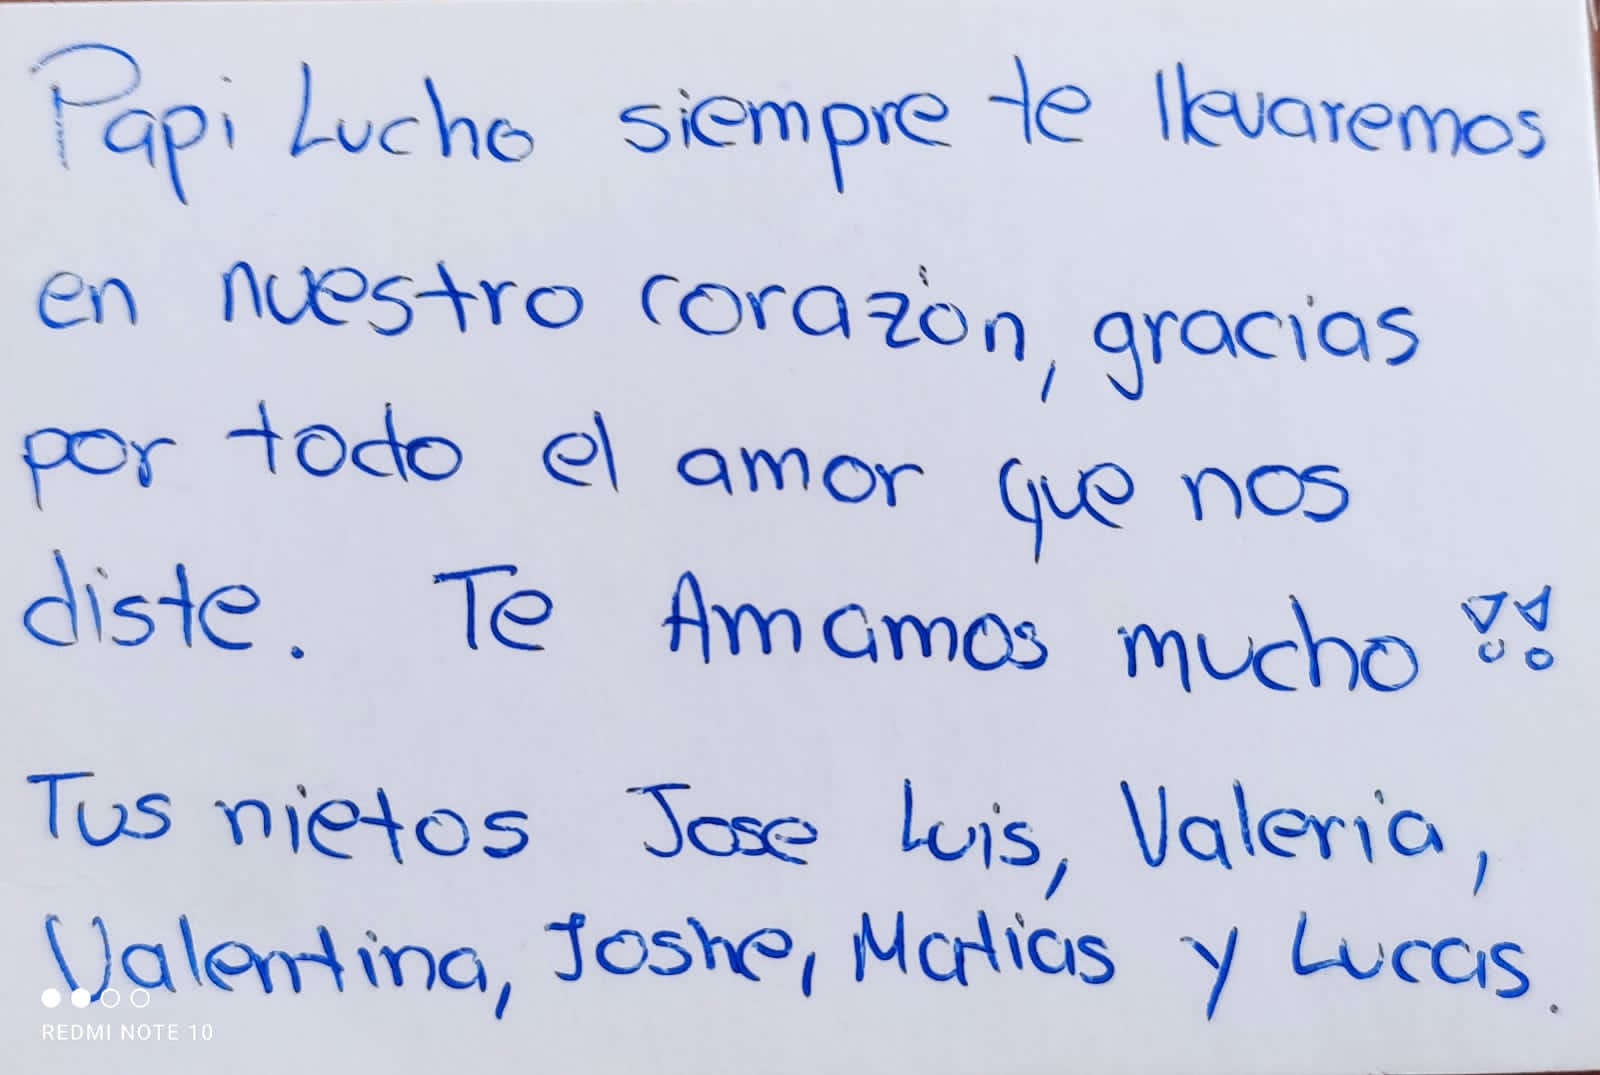 Papi Lucho siempre te llevaremos
en nuestro corazón, gracias
por todo el amor que nos
diste. Te Amamos mucho !!
Tus nietos Jose Luis, Valeria,
Valentina, Joshe, Matias y Luccas.
REDMI NOTE 10